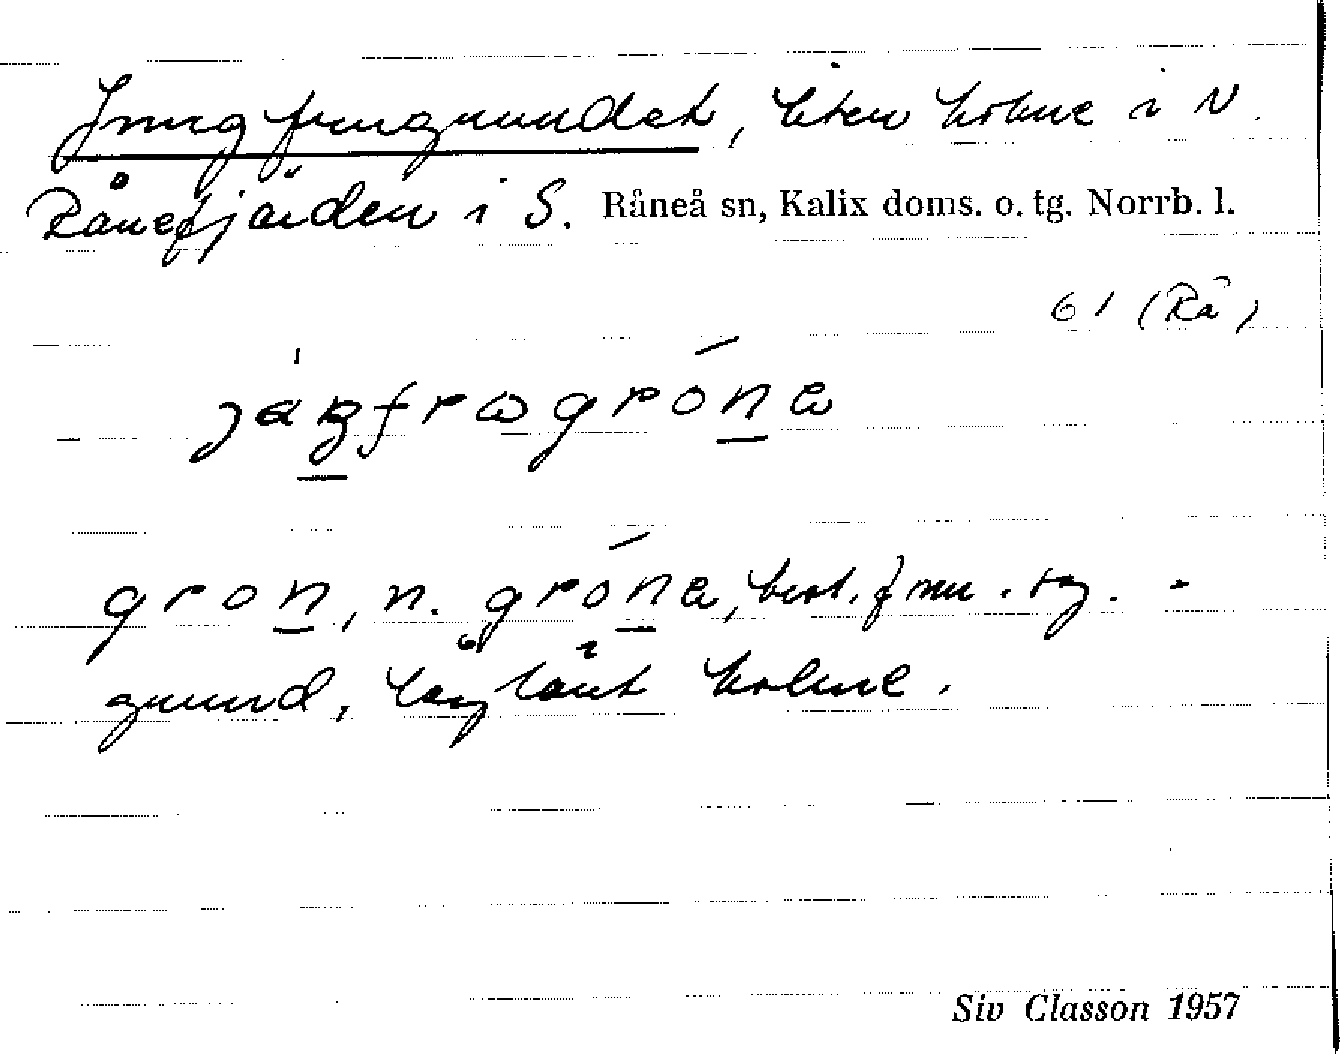 Jungfrugrundet, liten holme i N.
Rånefjärden i S. Råneå sn, Kalix doms. o. tg. Norrb. l.
61 (Rå)
jáŋfrɷgrónɐ
gron, n. gróna, best. f
grund, låglänt holme.
Siv Classon 1957